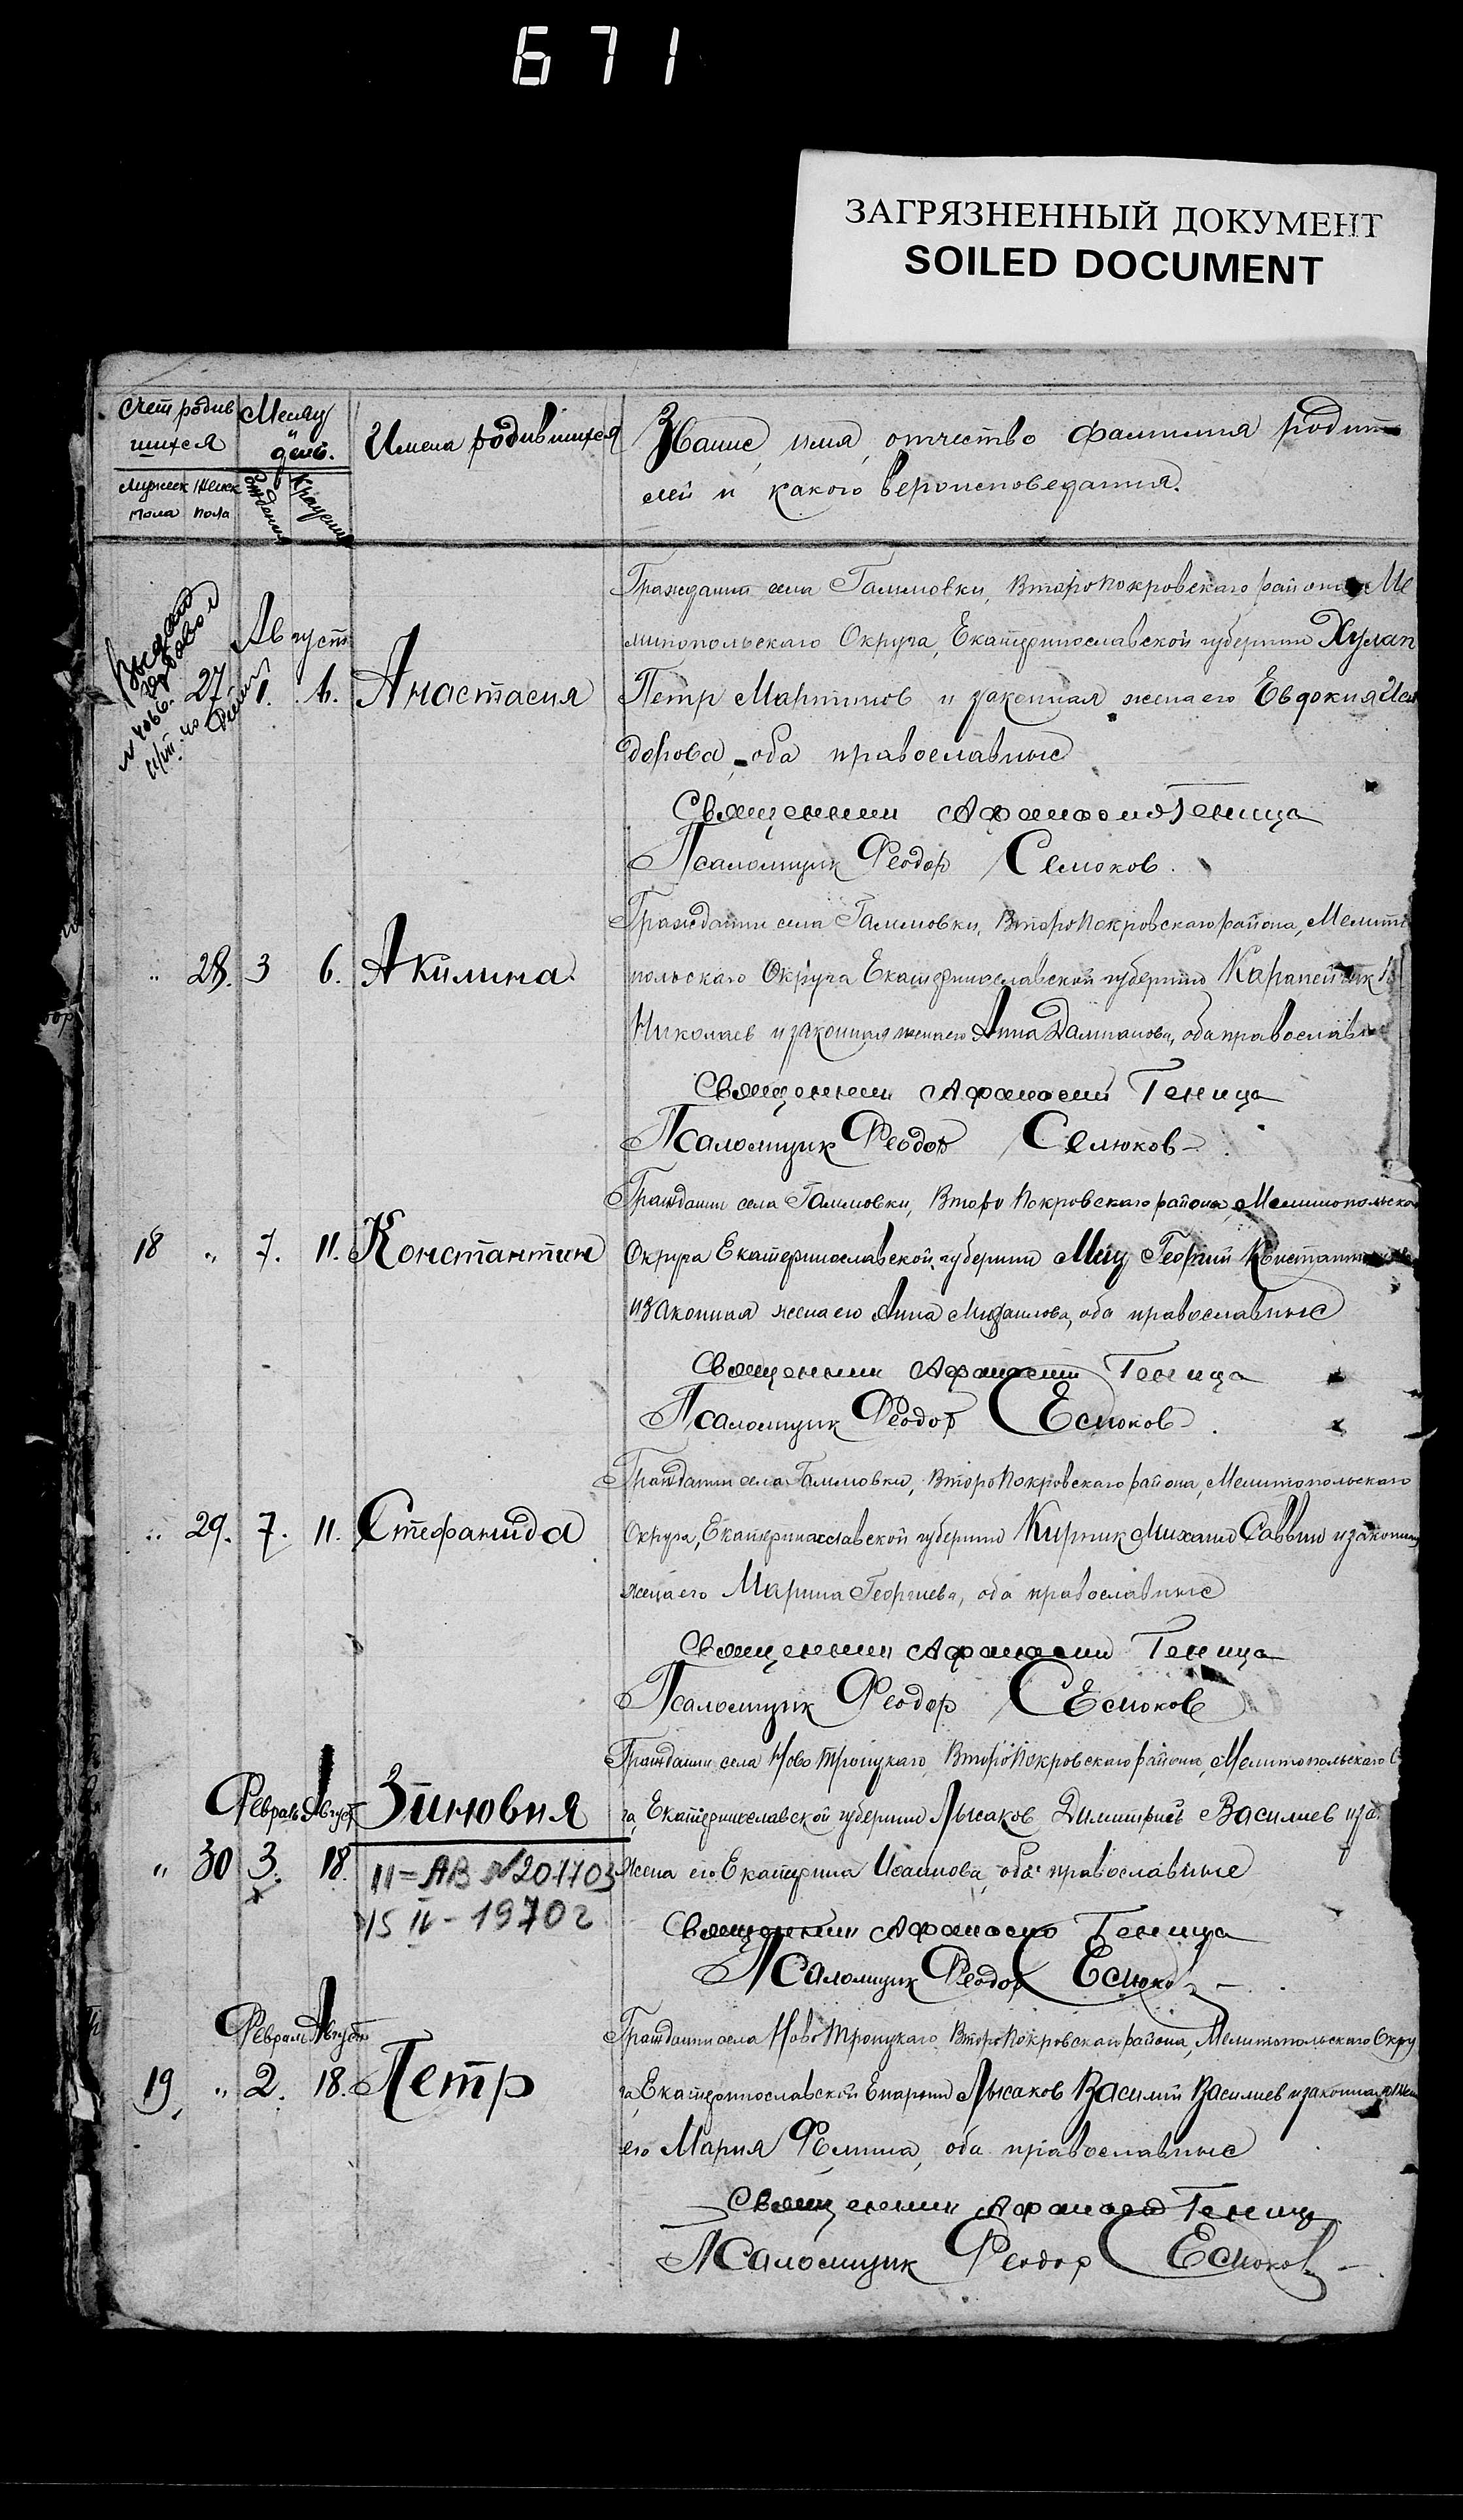 671
ЗАГРЯЗНЕННЫЙ ДОКУМЕНТ
SOILED DOCUMENT
Счет родив
шихся
Месяц
и
день.
Имена родившихся
Звание, имя, отчество фамилия родит
лей и какого вероисповедания.
мужск
пола
женск
пола
рождения
крещения
Август
27. 1. 6. Анастасия
Гражданин села Галиловки, Второпокровскаго района Ме
литопольскаго Округа, Екатеринославской губернии Хулап
Петр Мартинов и законная жена его Евдокия Иси
дорова, оба православные
Священник Афанасий Геница
Псаломщик Феодор Семоков.
" 28. 3 6. Акилина.
Гражданин села Галиловки, Второпокровскаго района, Мелито
польскаго Округа Екатеринославской губернии
Николаев и законная жена его Анна Далматова, оба православн
Священник Афанасий Геница
Псаломщик Феодор Семоков
18 " 7. 11. Константин
Гражданин села Галиловки, Второ Покровскаго района, Мелитопольско
Округа Екатеринославской губернии Мец Георгий Константин
и законная жена его Анна Михаилова, оба православные
Священник Афанасий Геница
Псаломщик Феодор Есмоков
" 29. 7. 11. Стефанида
Гражданин села Галиловки, Второпокровскаго района, Мелитопольскаго
Округа, Екатеринославской губернии Кирпик Михаил Саввин и законн
жена его Марина Георгиева, оба православные
Священник Афанасий Геница
Псаломщик Феодор Есмоков
Февраль Август
" 30 3. 18. Зиновия
11=АВ №201703
15 II-1970г
Гражданин села Ново Троицкаго, Второпокровскаго района, Мелитопольскаго О
га, Екатеринославской губернии Лысаков Димитрий Василиев и за
жена его Екатерина оба православные
Священник Афанасий Геница
Псаломщик Феодор Есмоков
Февраль Август
19. " 2. 18. Петр
Гражданин села Ново Троицкаго, Второпокровскаго района, Мелитопольскаго Окру
га, Екатеринославской Епархии Лысаков Василий Василиев и законная жен
его Мария Фомина, оба православные
Священник Афанасий Геница
Псаломщик Феодор Есмоков